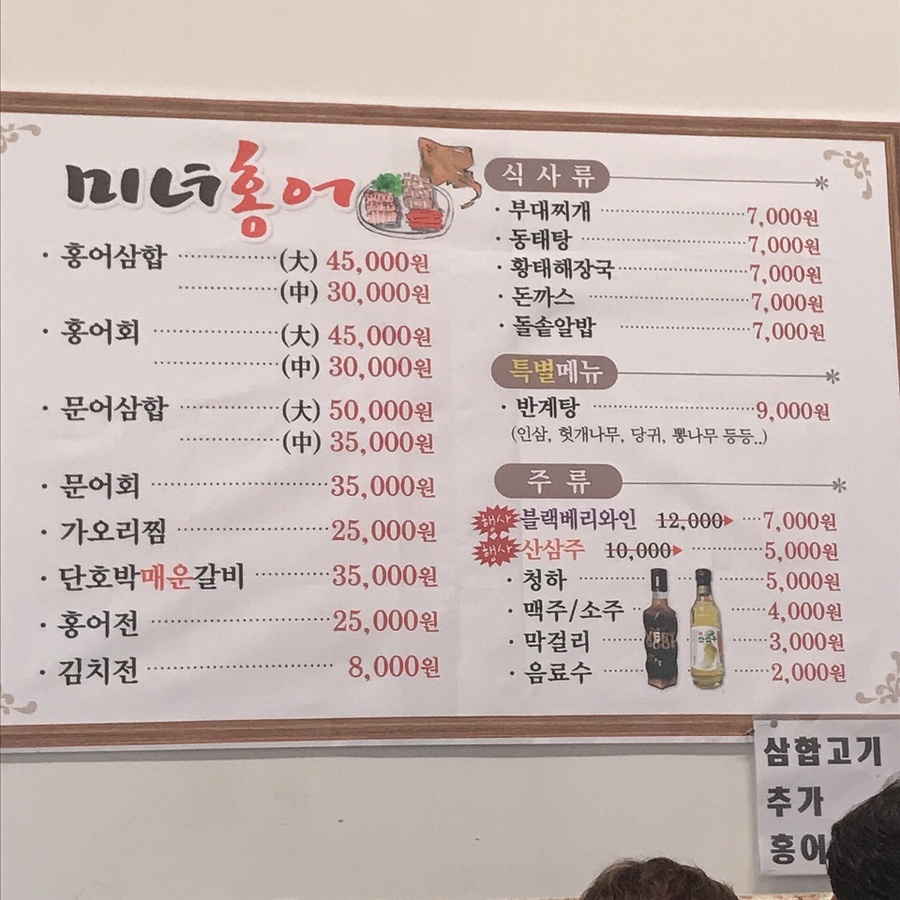 미녀홍어
· 홍어삼합 ················ (大) 45,000원
················ (中) 30,000원
· 홍어회 ················ (大) 45,000원
················ (中) 30,000원
· 문어삼합 ················ (大) 50,000원
················ (中) 35,000원
· 문어회 ················ 35,000원
· 가오리찜 ················ 25,000원
· 단호박매운갈비 ·········· 35,000원
· 홍어전 ················ 25,000원
· 김치전 ················ 8,000원
식사류
· 부대찌개 ················ 7,000원
· 동태탕 ················ 7,000원
· 황태해장국 ················ 7,000원
· 돈까스 ················ 7,000원
· 돌솥알밥 ················ 7,000원
특별메뉴
· 반계탕 ················ 9,000원
(인삼, 헛개나무, 당귀, 뽕나무 등등..)
주류
행사 블랙베리와인 12,000▶ ···· 7,000원
행사 산삼주 10,000▶ ········ 5,000원
· 청하 ················ 5,000원
· 맥주/소주 ················ 4,000원
· 막걸리 ················ 3,000원
· 음료수 ················ 2,000원
삼합고기
추가
홍어